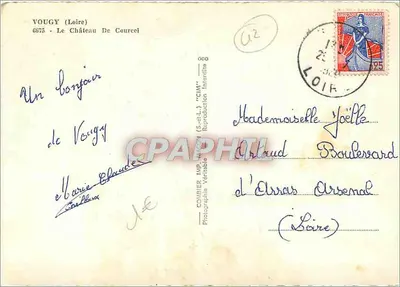 VOUGY (Loire)
6875 - Le Château De Courcel
42
Un bonjour
de Vougy
Marie Claude
COMBIER IMP. MACON (S.-et-L.) "CIM"
Photographie Véritable - Reproduction Interdite
LOIRE
0,25
CPAPHIL
Mademoiselle Joëlle
Artaud Boulevard
d'Arras Arsenal
(Loire)
1€